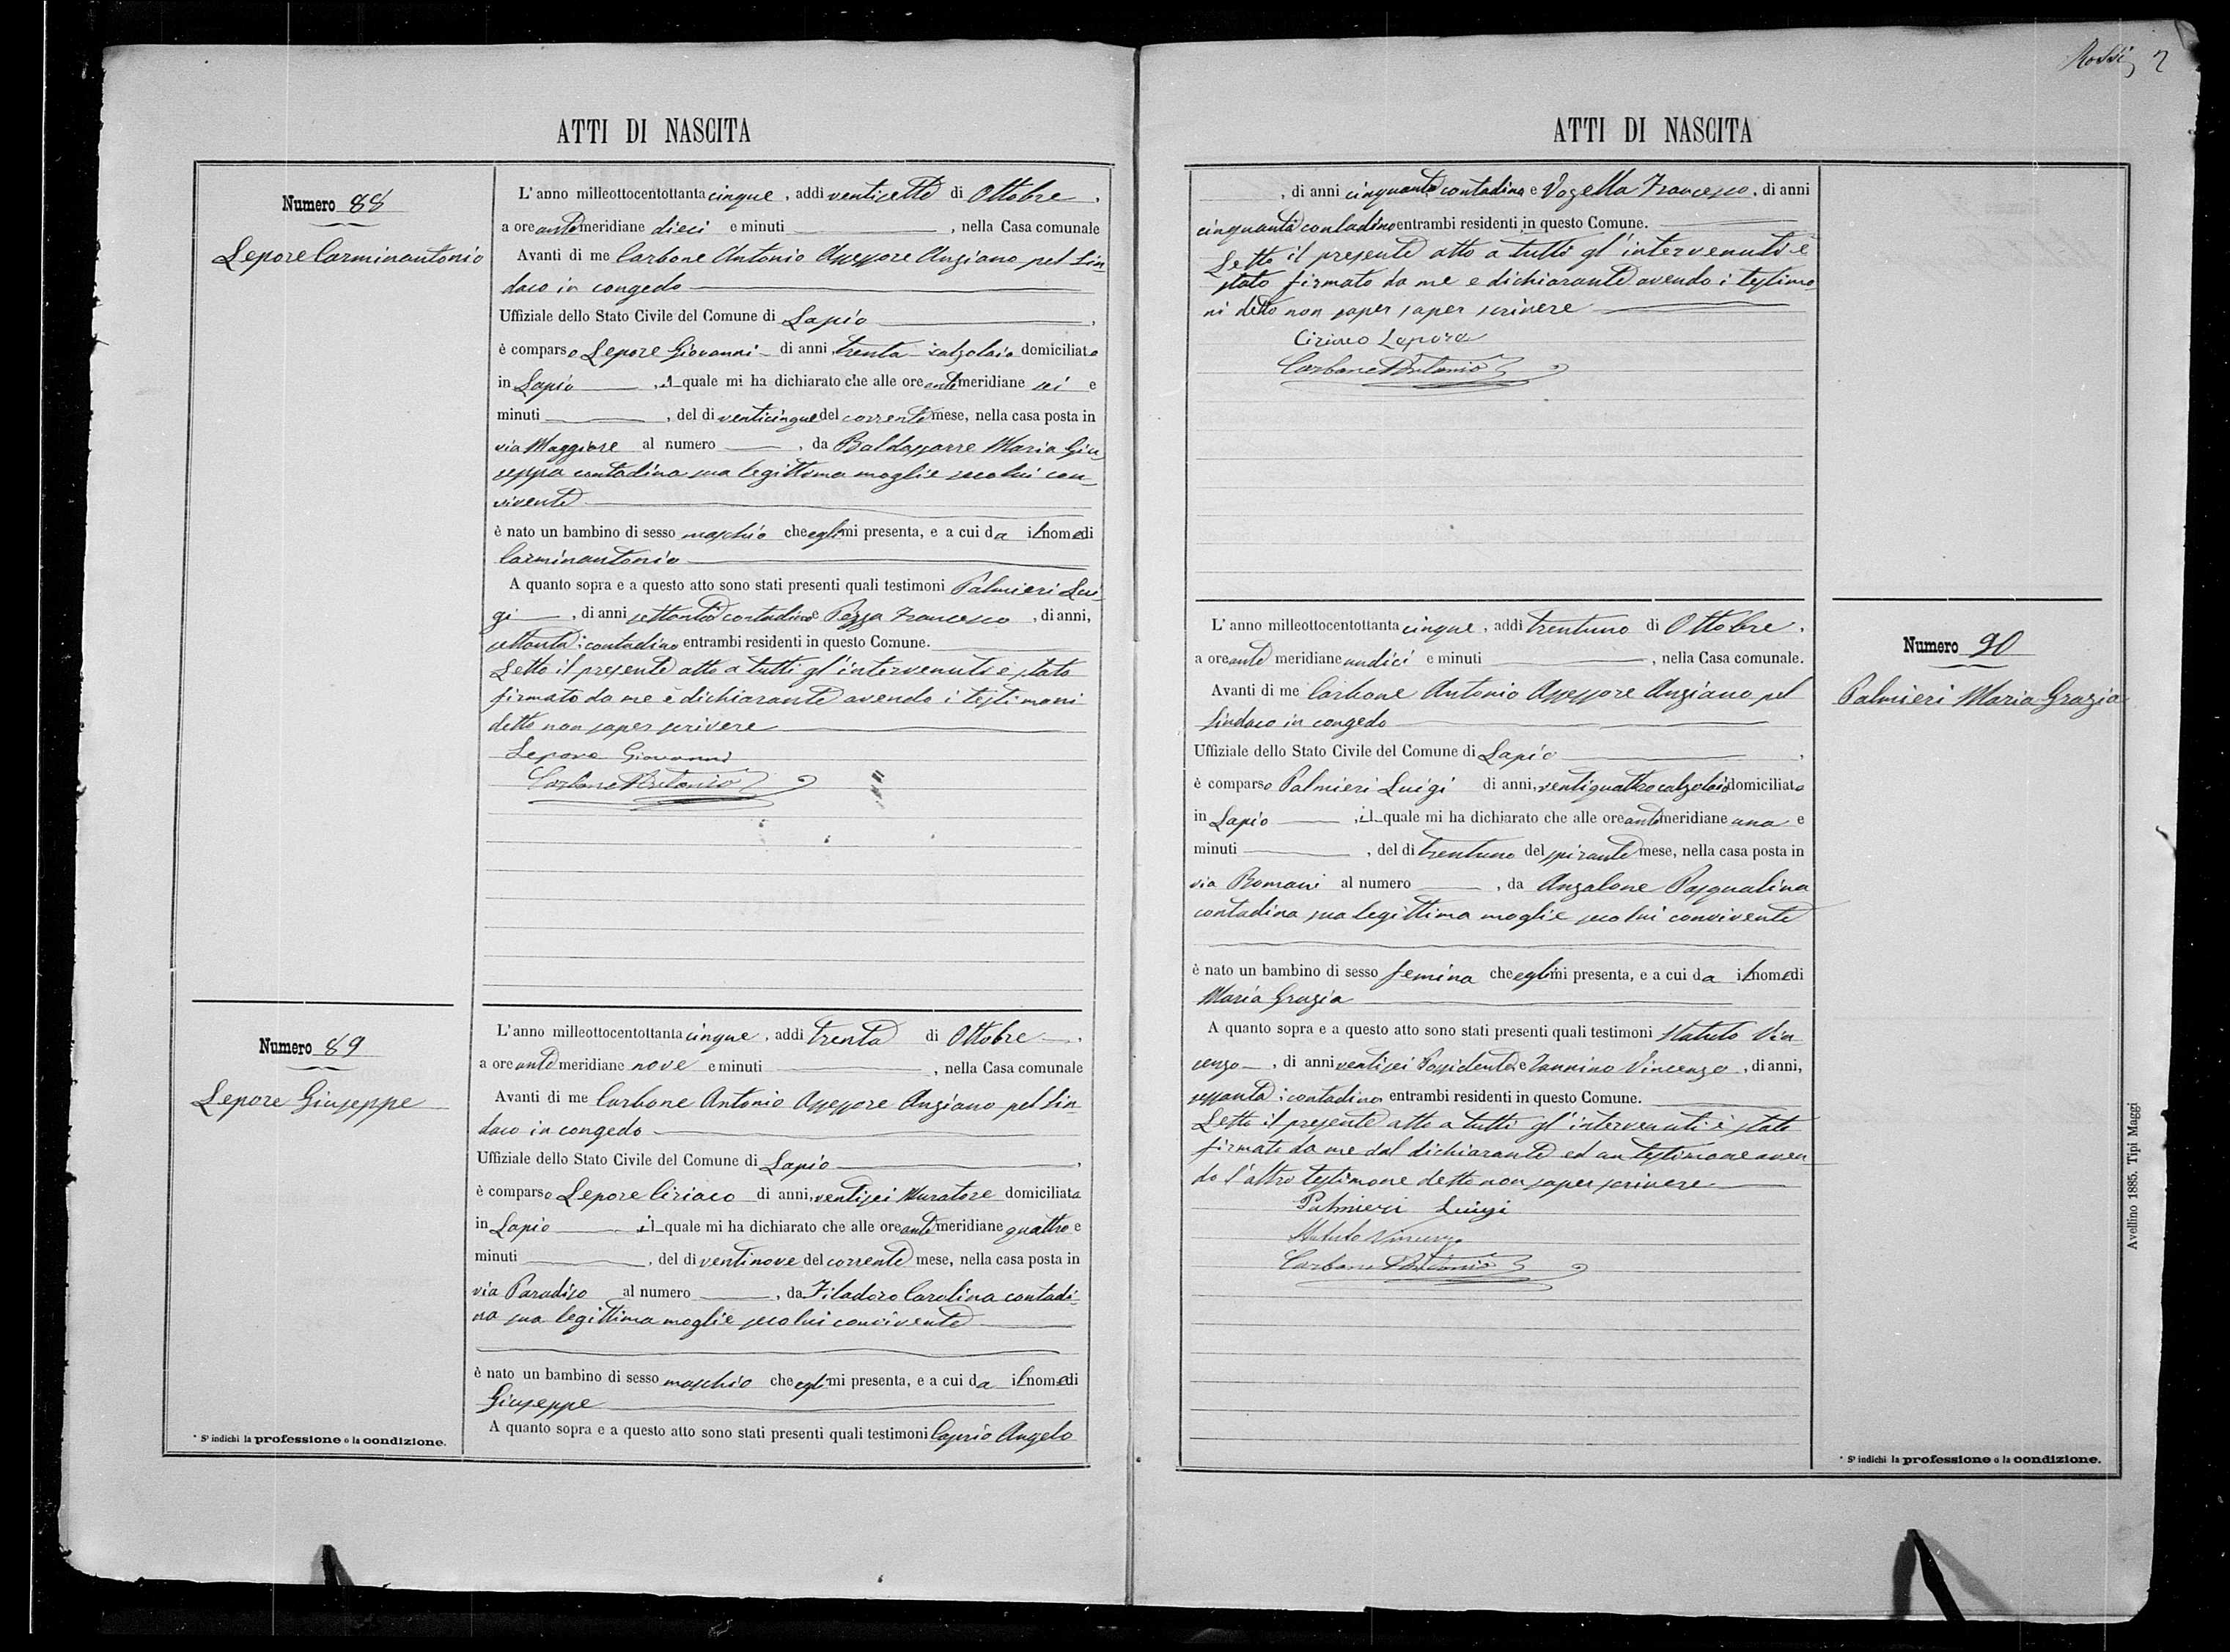 ATTI DI NASCITA
Numero 88
Lepore Carminantonio
L'anno milleottocentottantacinque, addi ventisette di Ottobre,
a ore antemeridiane dieci e minuti , nella Casa comunale
Avanti di me Carbone Antonio Assessore Anziano pel Sin
daco in congedo
Uffiziale dello Stato Civile del Comune di Lapio,
è comparso Lepore Giovanni di anni, trenta calzolaio domiciliato
in Lapio, il quale mi ha dichiarato che alle ore antemeridiane sei e
minuti , del di venticinque del corrente mese, nella casa posta in
via Maggiore al numero , da Baldassarre Maria Giu
seppa contadina sua legittima moglie seco lui con-
vivente
è nato un bambino di sesso maschio che egli mi presenta, e a cui da il nome di
Carminantonio
A quanto sopra e a questo atto sono stati presenti quali testimoni Palmieri Lui
gi , di anni settanta contadino e Pezza Francesco, di anni,
settanta; contadino entrambi residenti in questo Comune.
Letto il presente atto a tutti gl'intervenuti è stato
firmato da me e dichiarante avendo i testimoni
detto non saper scrivere
Lepore Giovanni
Carbone Antonio
Numero 89
Lepore Giuseppe
L'anno milleottocentottanta cinque, addi trenta di Ottobre,
a ore antemeridiane nove e minuti , nella Casa comunale
Avanti di me Carbone Antonio Assessore Anziano pel Sin
daco in congedo
Uffiziale dello Stato Civile del Comune di Lapio,
è comparso Lepore Ciriaco di anni, ventisei Muratore domiciliato
in Lapio il quale mi ha dichiarato che alle ore antemeridiane quattro e
minuti , del di ventinove del corrente mese, nella casa posta in
via Paradiso al numero , da Filadoro Carolina contadi-
na sua legittima moglie seco lui convivente
è nato un bambino di sesso maschio che egli mi presenta, e a cui da il nome di
Giuseppe
A quanto sopra e a questo atto sono stati presenti quali testimoni Angelo
* S' indichi la professione o la condizione.
Rossi
ATTI DI NASCITA
, di anni cinquanta contadino e Vozella Francesco, di anni
cinquanta contadino entrambi residenti in questo Comune.
Letto il presente atto a tutti gl'intervenuti è
stato firmato da me e dichiarante avendo i testimo
ni detto non saper saper scrivere
Ciriaco Lepore
Carbone Antonio
Numero 90
Palmieri Maria Grazia
L'anno milleottocentottanta cinque, addi trentuno di Ottobre,
a ore ante meridiane undici e minuti , nella Casa comunale.
Avanti di me Carbone Antonio Assessore Anziano pel
Sindaco in congedo
Uffiziale dello Stato Civile del Comune di Lapio,
è comparso Palmieri Luigi di anni, ventiquattro calzolaio domiciliato
in Lapio , il quale mi ha dichiarato che alle ore antemeridiane una e
minuti , del di trentuno del spirante mese, nella casa posta in
via Romani al numero , da Anzalone Pasqualina
contadina sua legittima moglie seco lui convivente
è nato un bambino di sesso femina che egli mi presenta, e a cui da il nome di
Maria Grazia
A quanto sopra e a questo atto sono stati presenti quali testimoni Statuto Vin
cenzo , di anni ventisei Possidente e Iannino Vincenzo, di anni,
sessanta; contadino entrambi residenti in questo Comune.
Letto il presente atto a tutti gl'intervenuti è stato
firmato da me dal dichiarante ed un testimone aven
do l'altro testimone detto non saper scrivere
Palmieri Luigi
Statuto Vincenzo
Carbone Antonio
* S' indichi la professione o la condizione.
Avellino 1885. Tipi Maggi